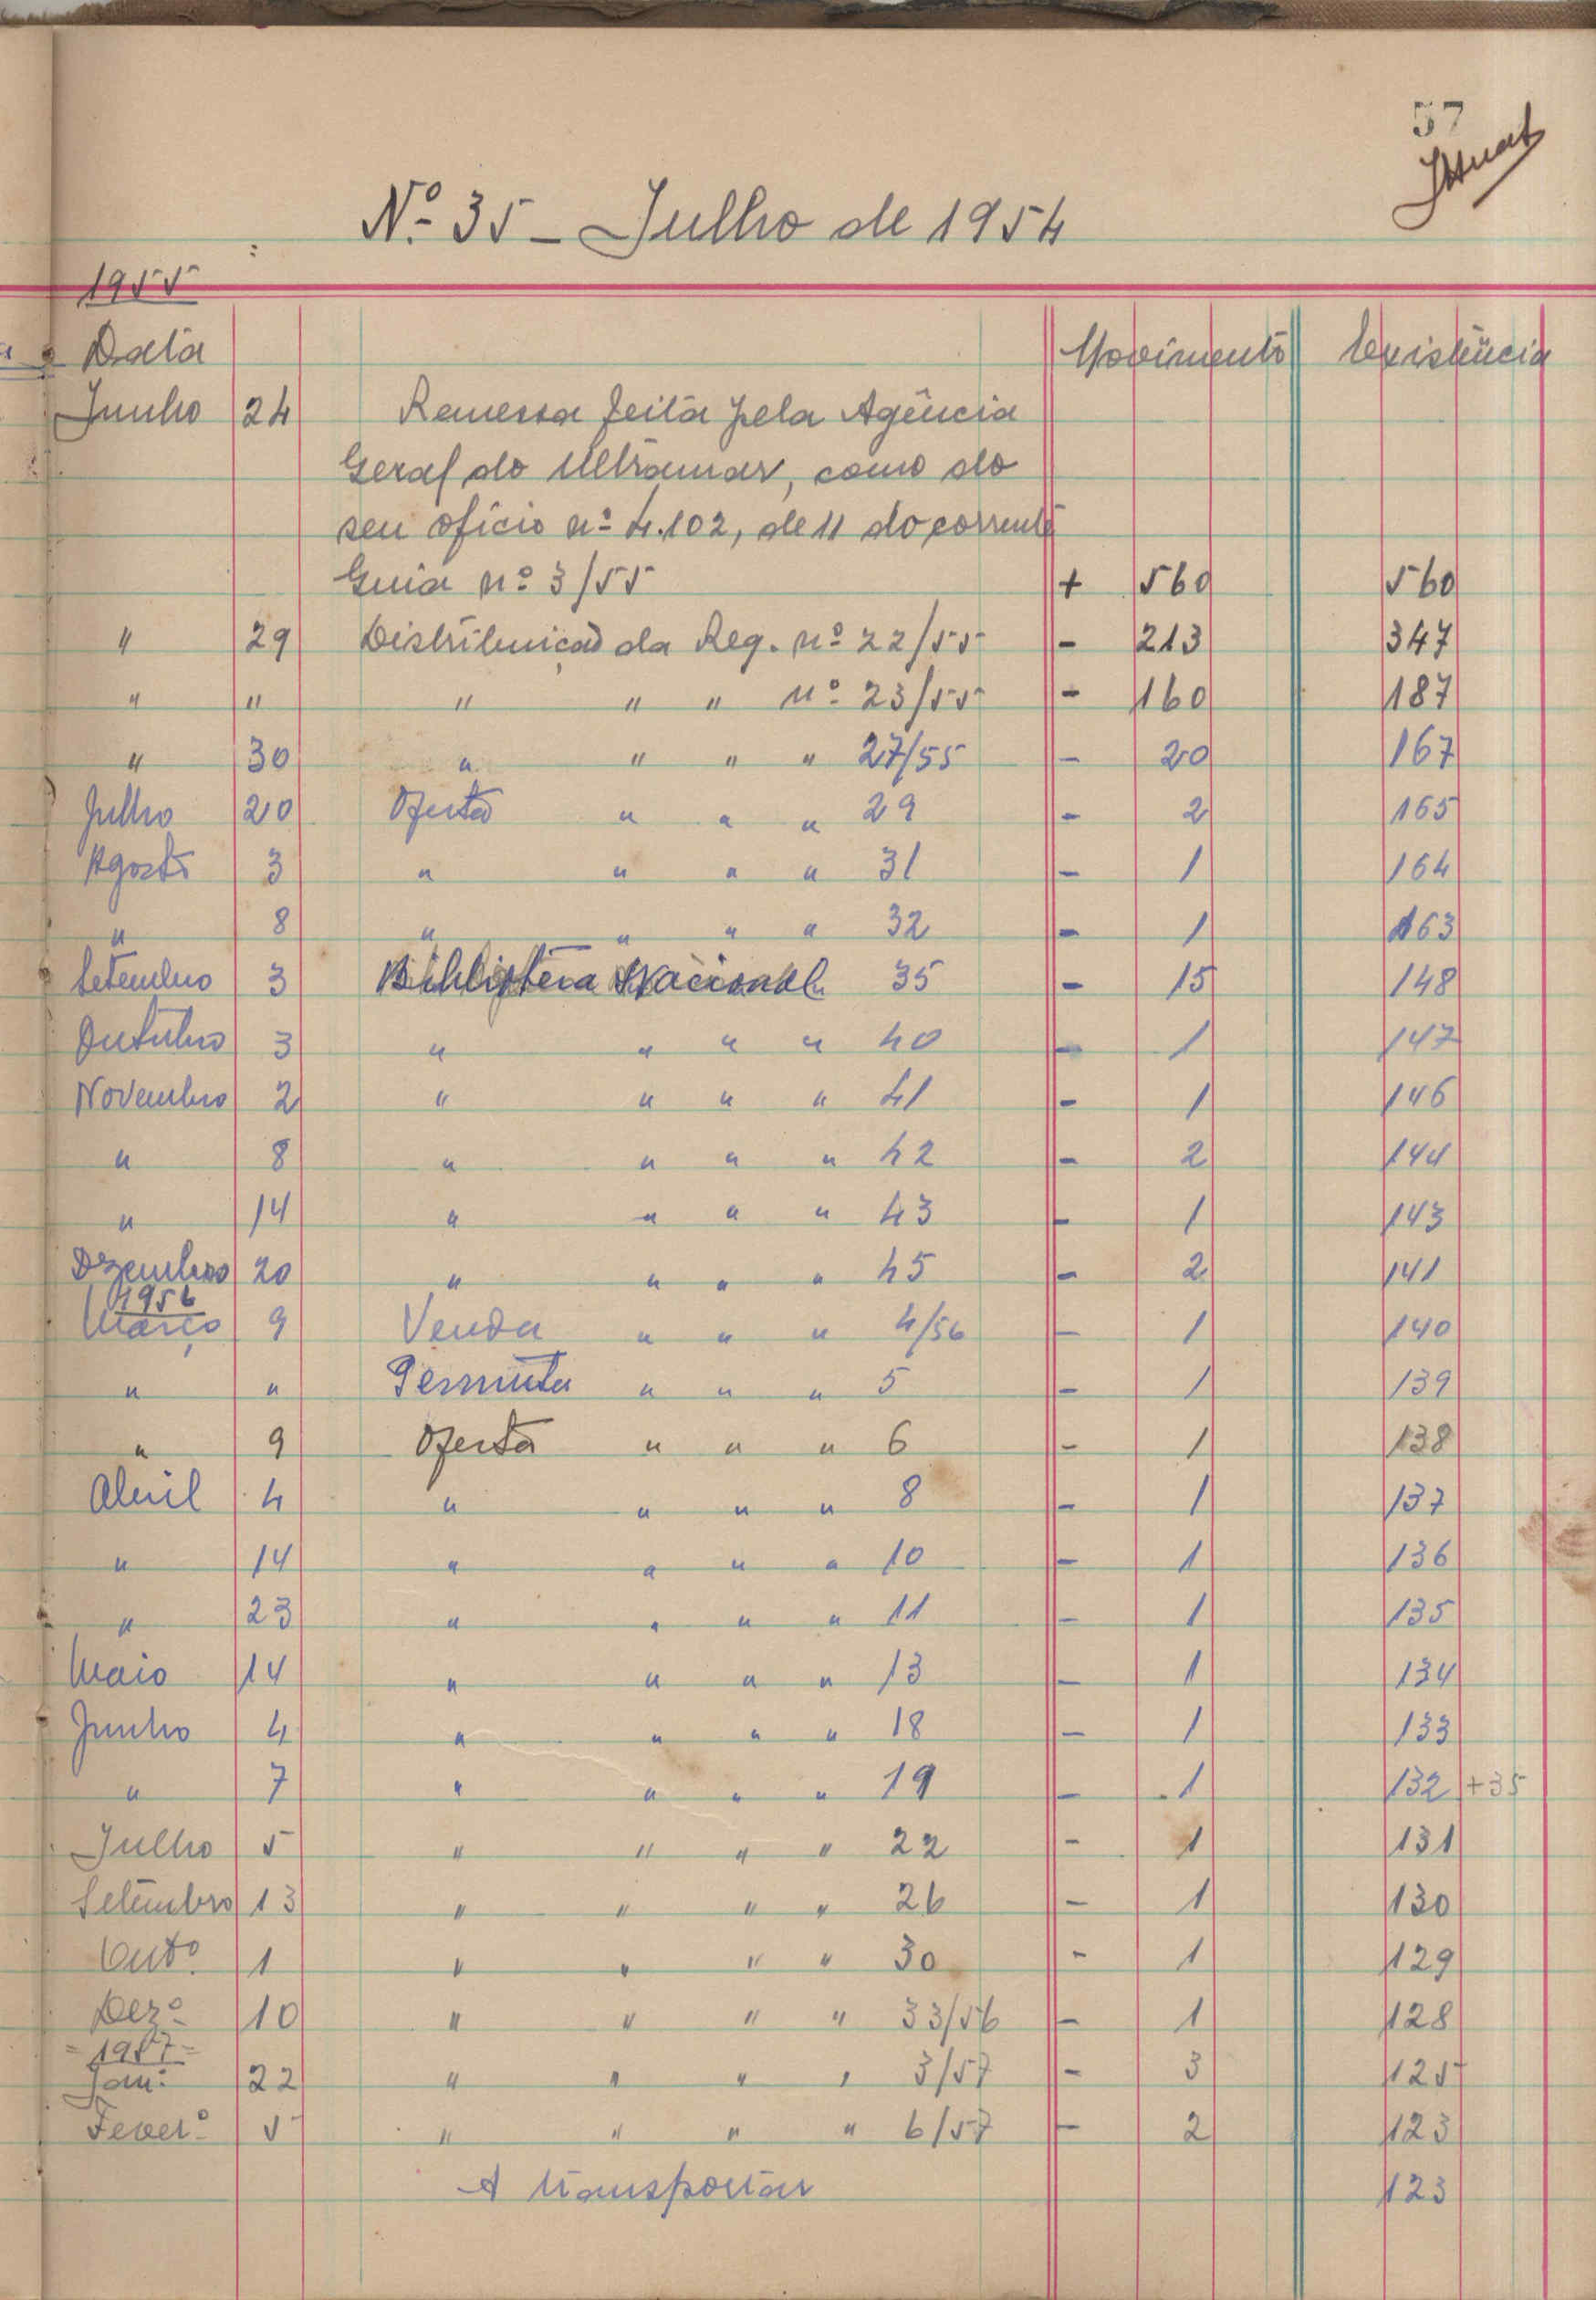 57
Nº 35 - Julho de 1954
1955
Data Movimento Existência
Junho 24 Remessa feita pela Agência
Geral do Ultramar, como do
seu ofício nº 4.102, de 11 do corrente
Guia nº 3/55 + 560 560
" 29 Distribuição da Req. nº 22/55 - 213 347
" " " " " nº 23/55 - 160 187
" 30 " " " " 27/55 - 20 167
Julho 20 Oferta " " " 29 - 2 165
Agosto 3 " " " " 31 - 1 164
" 8 " " " " 32 - 1 163
Setembro 3 Biblioteca Nacional 35 - 15 148
Outubro 3 " " " " 40 - 1 147
Novembro 2 " " " " 41 - 1 146
" 8 " " " " 42 - 2 144
" 14 " " " " 43 - 1 143
Dezembro 20 " " " " 45 - 2 141
1956
Março 9 Venda " " " 4/56 - 1 140
" " Permuta " " " 5 - 1 139
" 9 Oferta " " " 6 - 1 138
Abril 4 " " " " 8 - 1 137
" 14 " " " " 10 - 1 136
" 23 " " " " 11 - 1 135
Maio 14 " " " " 13 - 1 134
Junho 4 " " " " 18 - 1 133
" 7 " " " " 19 - 1 132 +35
Julho 5 " " " " 22 - 1 131
Setembro 13 " " " " 26 - 1 130
Outº 1 " " " " 30 - 1 129
Dezº 10 " " " " 33/56 - 1 128
= 1957 =
Jan: 22 " " " " 3/57 - 3 125
Feverº 5 " " " " 6/57 - 2 123
A transportar 123